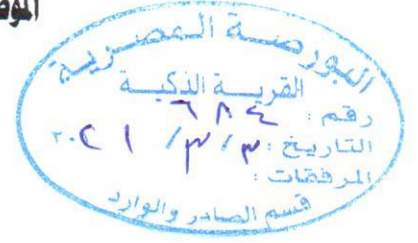 الموض
البورصة المصرية
القرية الذكية
رقم: ٦٨٤
التاريخ: ٣/٣/٢٠٢١
المرفقات:
قسم الصادر والوارد